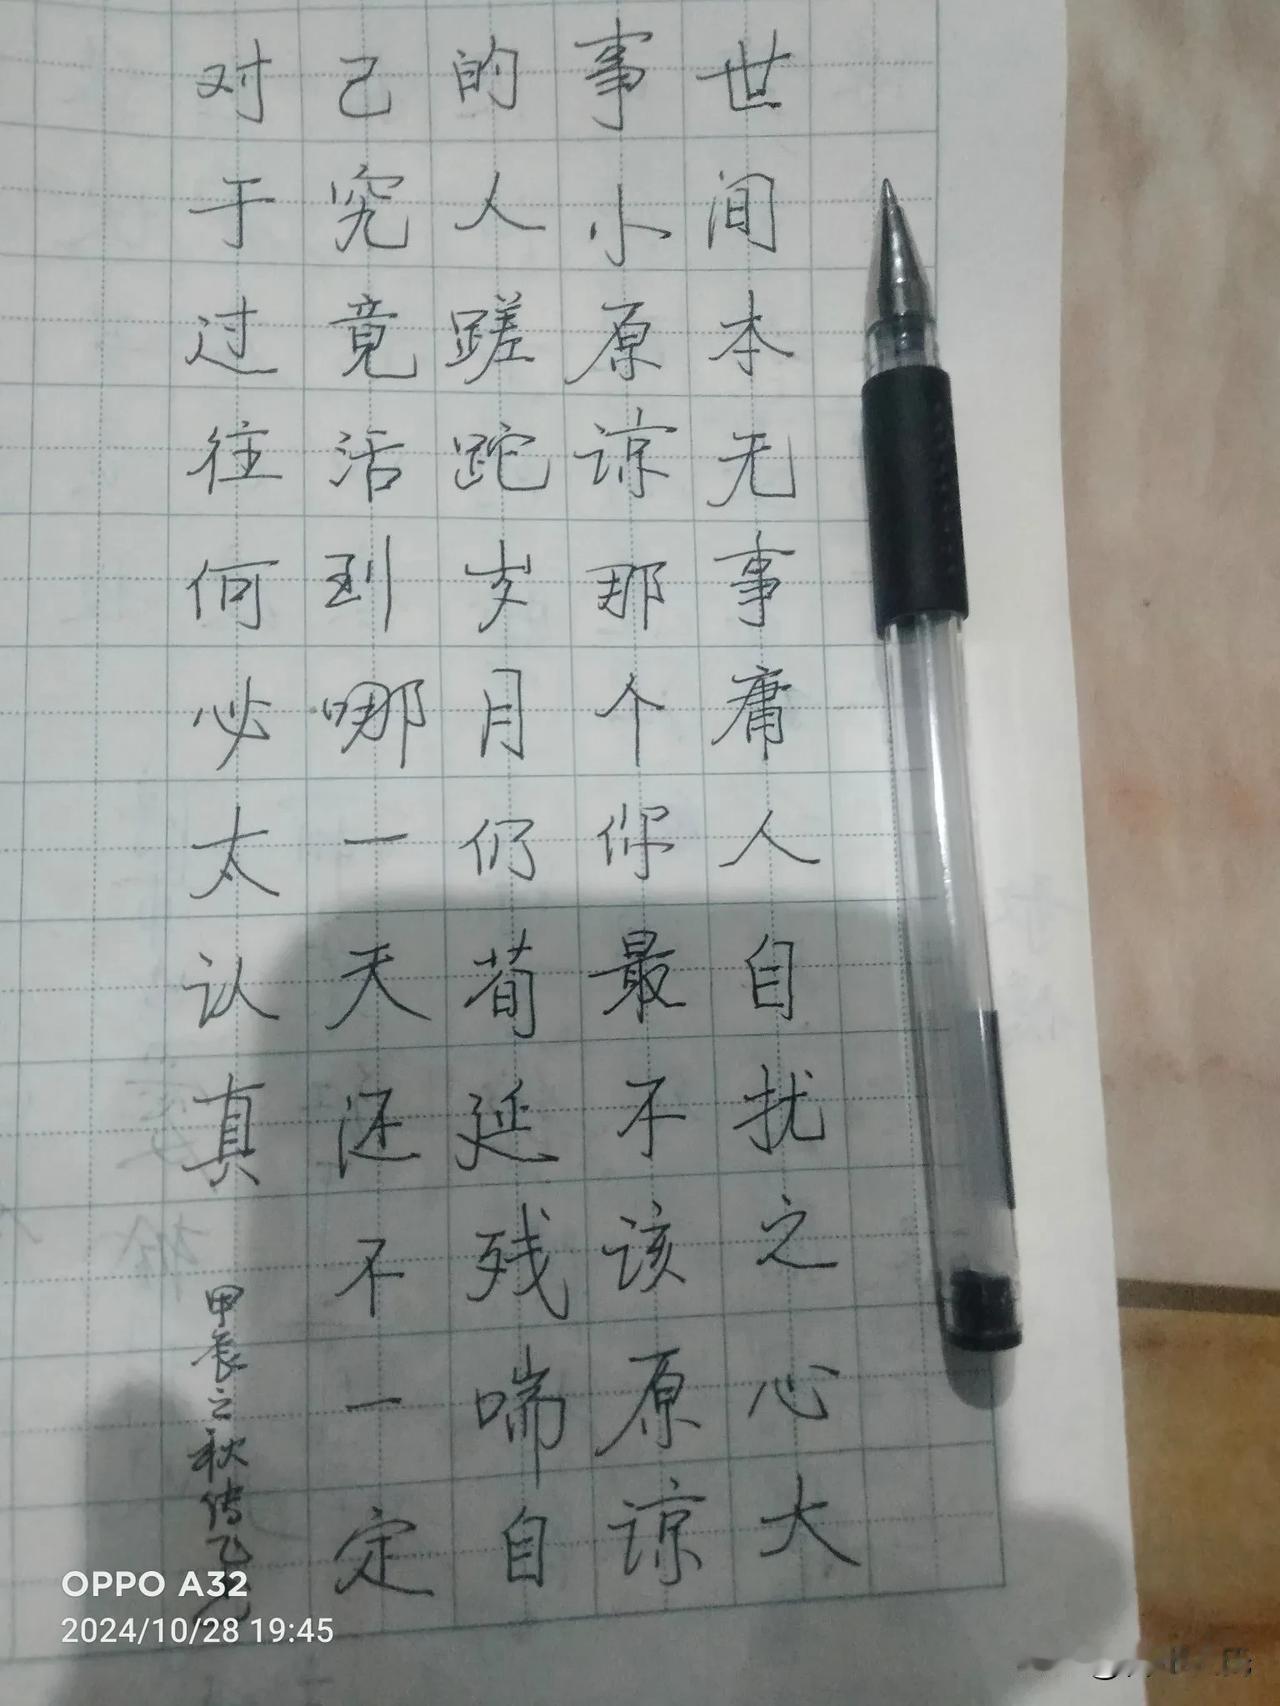 世间本无事庸人自扰之心大
事小原谅那个你最不该原谅
的人蹉跎岁月仍苟延残喘自
己究竟活到哪一天还不一定
对于过往何必太认真
甲辰之秋传飞
OPPO A32
2024/10/28 19:45